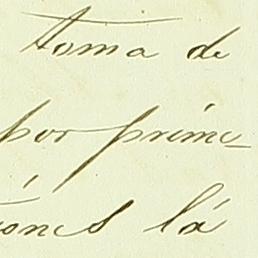 toma de
por prime-
iones lá